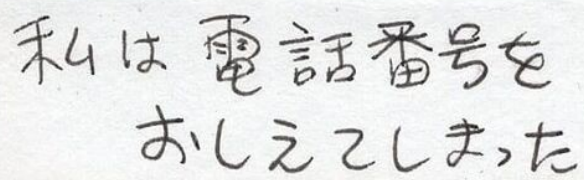 私は電話番号を
おしえてしまった